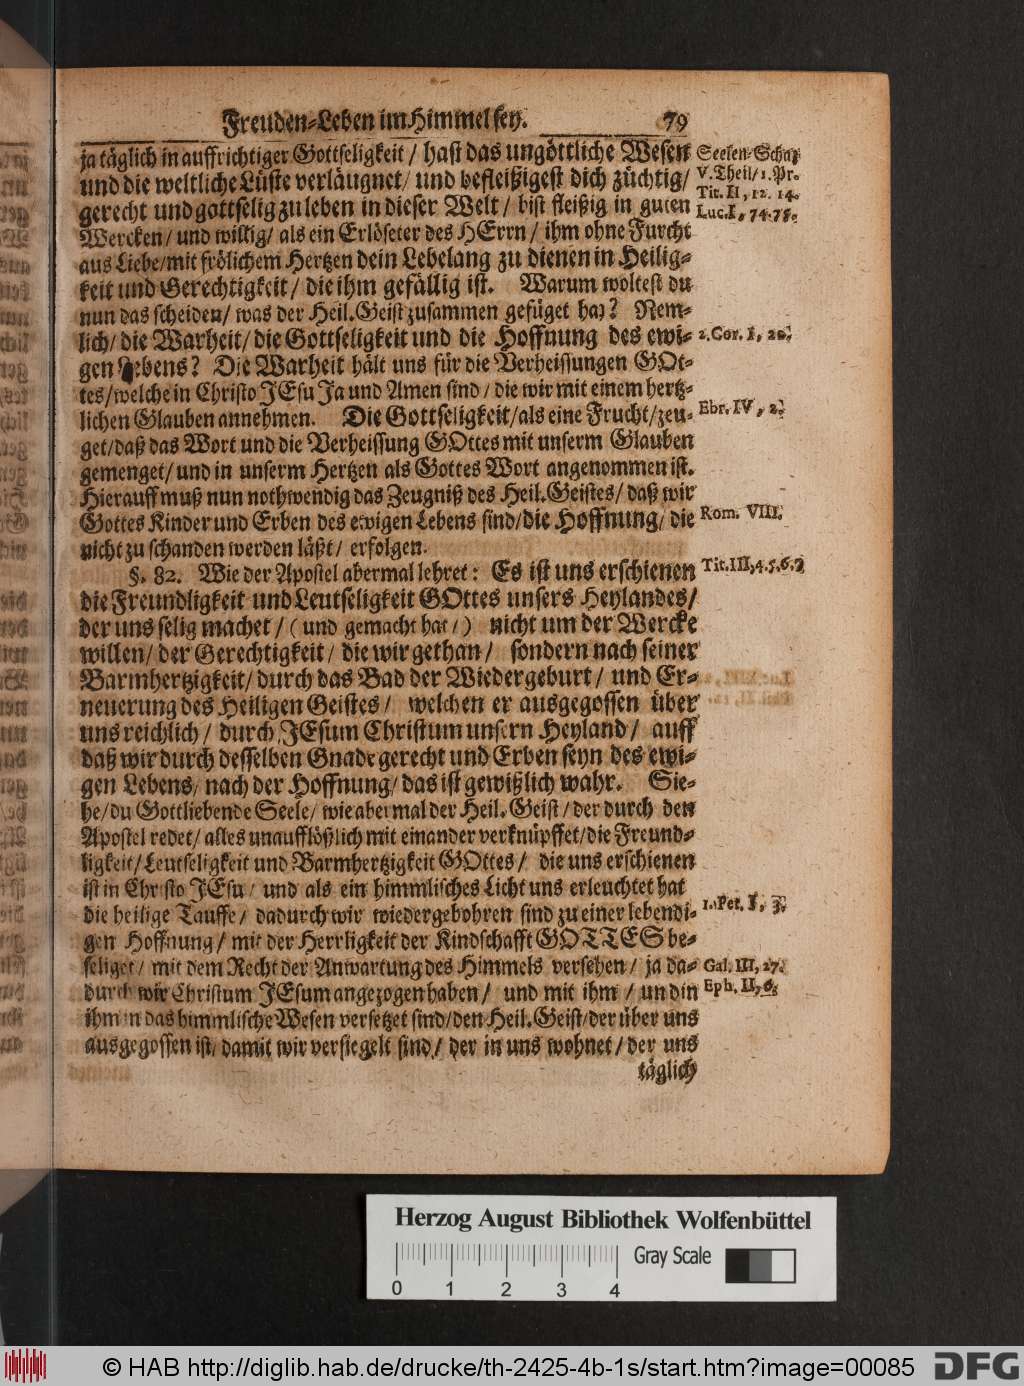 Freuden-Leben im Himmel sey. 79
ja täglich in auffrichtiger Gottseligkeit / hast das ungöttliche Wesen
und die weltliche Lüste verläugnet / und befleißigest dich züchtig /
gerecht und gottselig zu leben in dieser Welt / bist fleißig in guten
Wercken / und willig / als ein Erlöseter des HErrn / ihm ohne Furcht
aus Liebe / mit frölichem Hertzen dein Lebelang zu dienen in Heilig-
keit und Gerechtigkeit / die ihm gefällig ist. Warum woltest du
nun das scheiden / was der Heil. Geist zusammen gefüget hat? Nem-
lich / die Warheit / die Gottseligkeit und die Hoffnung des ewi-
gen Lebens? Die Warheit hält uns für die Verheissungen GOt-
tes / welche in Christo JEsu Ja und Amen sind / die wir mit einem hertz-
lichen Glauben annehmen. Die Gottseligkeit / als eine Frucht / zeu-
get / daß das Wort und die Verheissung GOttes mit unserm Glauben
gemenget / und in unserm Hertzen als Gottes Wort angenommen ist.
Hierauff muß nun nothwendig das Zeugniß des Heil. Geistes / daß wir
Gottes Kinder und Erben des ewigen Lebens sind / die Hoffnung / die
nicht zu schanden werden läßt / erfolgen.
§. 82. Wie der Apostel abermal lehret: Es ist uns erschienen
die Freundligkeit und Leutseligkeit GOttes unsers Heylandes /
der uns selig machet / ( und gemacht hat / ) nicht um der Wercke
willen / der Gerechtigkeit / die wir gethan / sondern nach seiner
Barmhertzigkeit / durch das Bad der Wiedergeburt / und Er-
neuerung des Heiligen Geistes / welchen er ausgegossen über
uns reichlich / durch JEsum Christum unsern Heyland / auff
daß wir durch desselben Gnade gerecht und Erben seyn des ewi-
gen Lebens / nach der Hoffnung / das ist gewißlich wahr. Sie-
he / du Gottliebende Seele / wie abermal der Heil. Geist / der durch den
Apostel redet / alles unaufflößlich mit einander verknüpffet / die Freund-
ligkeit / Leutseligkeit und Barmhertzigkeit GOttes / die uns erschienen
ist in Christo JEsu / und als ein himmlisches Licht uns erleuchtet hat
die heilige Tauffe / dadurch wir wiedergebohren sind zu einer lebendi-
gen Hoffnung / mit der Herrligkeit der Kindschafft GOTTES be-
seliget / mit dem Recht der Anwartung des Himmels versehen / ja da-
durch wir Christum JEsum angezogen haben / und mit ihm / und in
ihm in das himmlische Wesen versetzet sind / den Heil. Geist / der über uns
ausgegossen ist / damit wir versiegelt sind / der in uns wohnet / der uns
täglich
Seelen-Schatz
V. Theil / 1. Pr.
Tit. II, 12. 14.
Luc. I, 74. 75.
2. Cor. I, 20.
Ebr. IV, 2.
Rom. VIII.
Tit. III, 4. 5. 6. 7
1. Pet. I, 3.
Gal. III, 27.
Eph. II, 6.
Herzog August Bibliothek Wolfenbüttel
Gray Scale
0 1 2 3 4
© HAB http://diglib.hab.de/drucke/th-2425-4b-1s/start.htm?image=00085
DFG